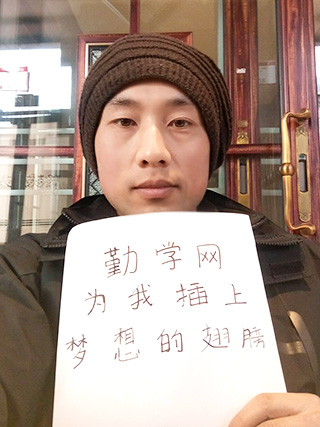 勤学网
为我插上
梦想的翅膀